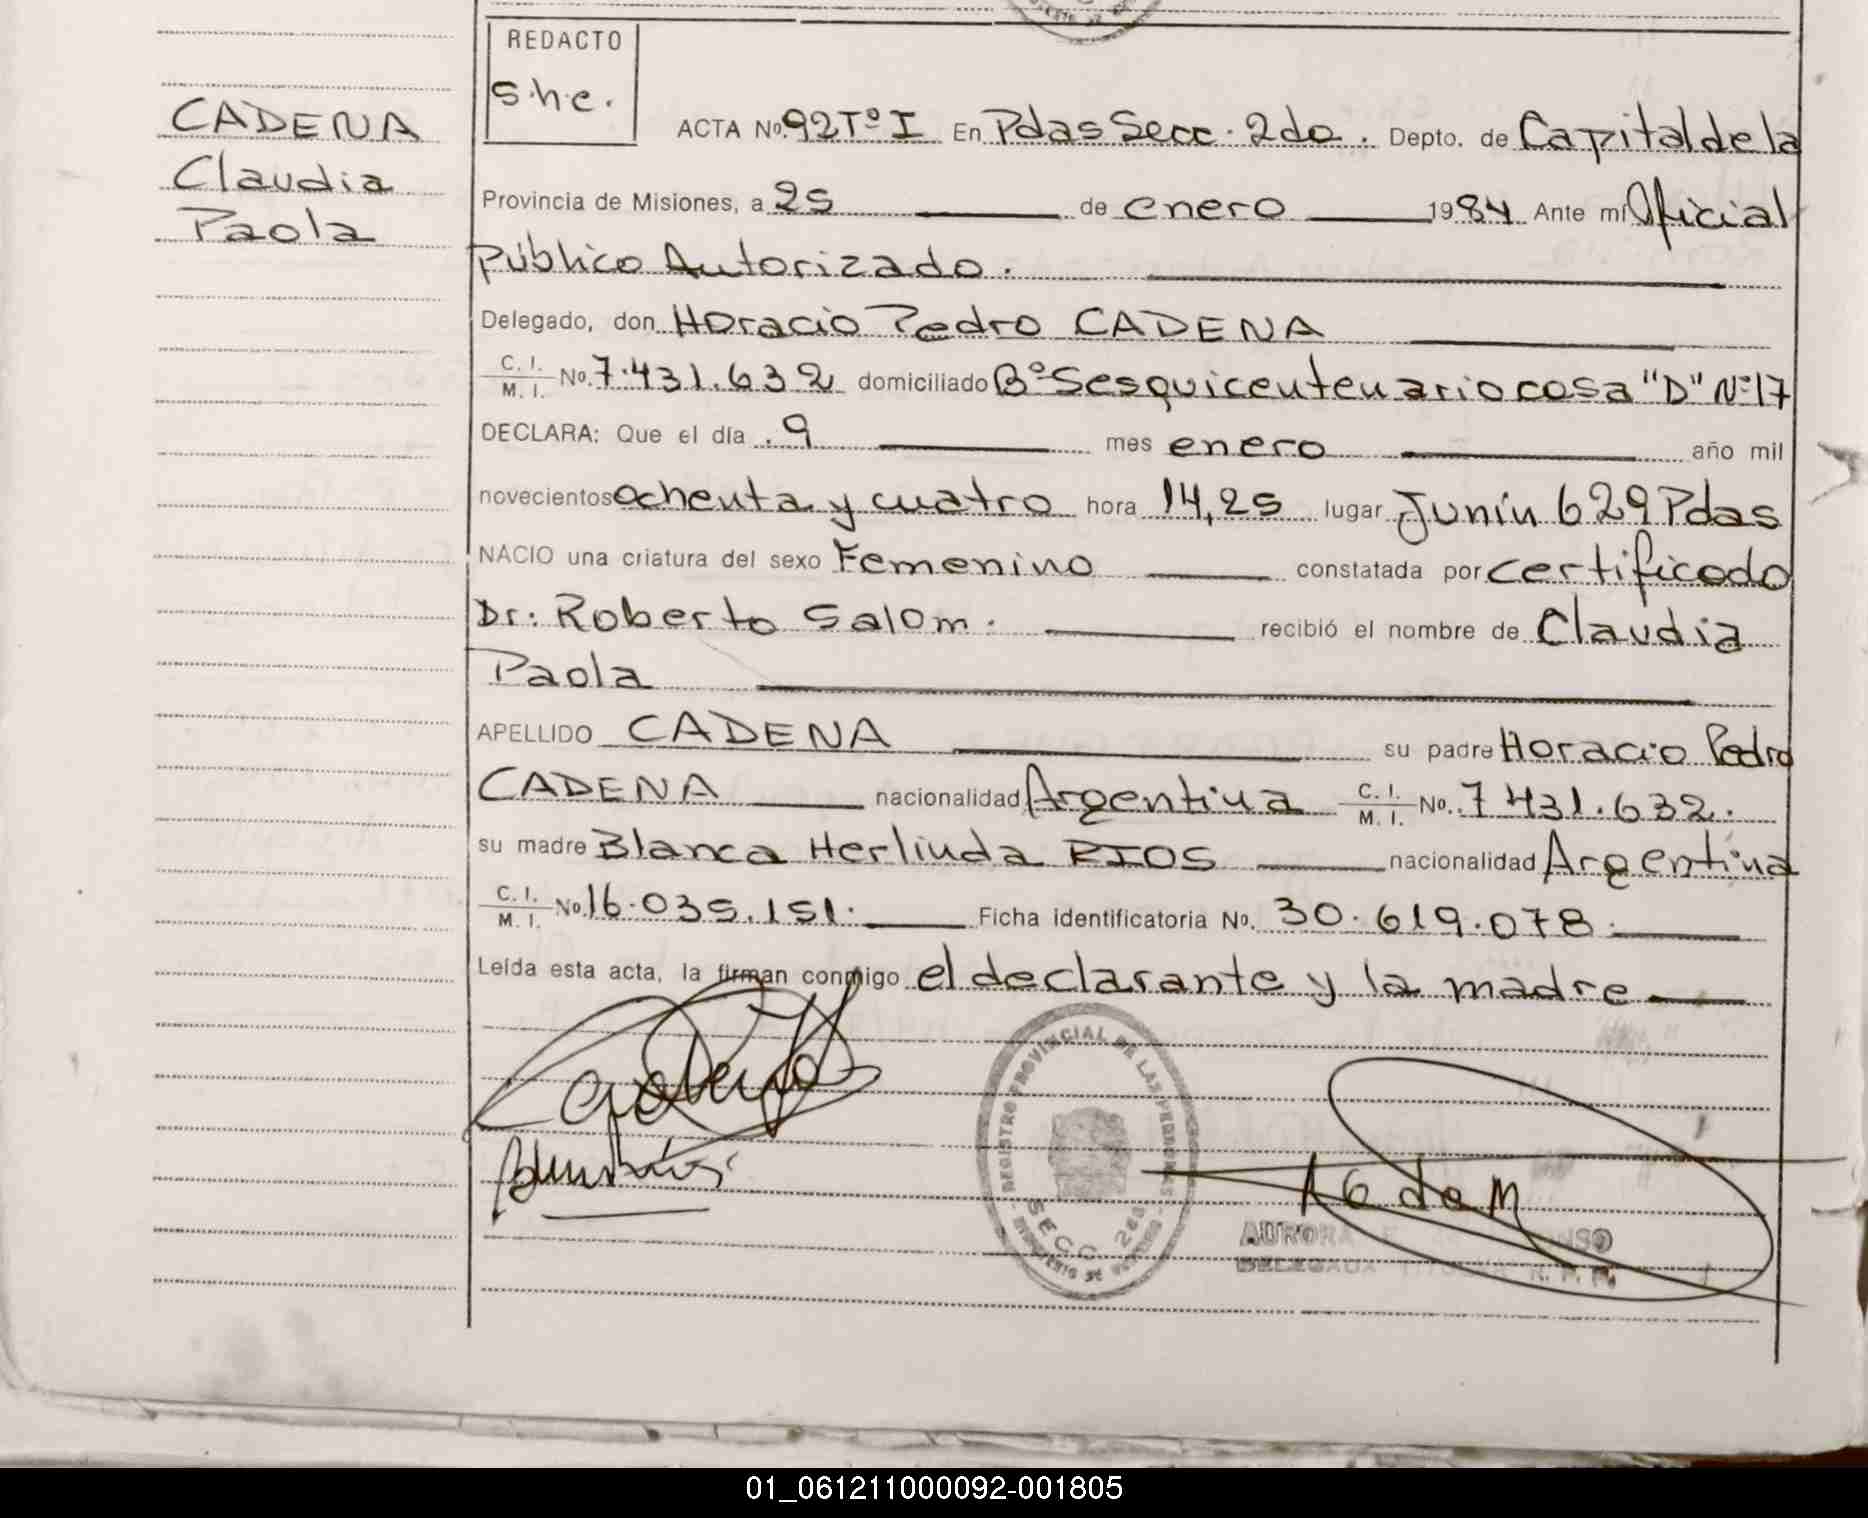 REDACTO
s.h.e.
CADENA
Claudia
Paola
ACTA No. 92 Tº I En Pdas Secc. 2da. Depto. de Capital de la
Provincia de Misiones, a 25 de enero 1984 Ante mí Oficial
Público Autorizado.
Delegado, don Horacio Pedro CADENA
C. I. M. I. No. 7.431.632 domiciliado Bº Sesquicentenario casa "D" Nº 17
DECLARA: Que el día 9 mes enero año mil
novecientos ochenta y cuatro hora 14,25 lugar Junín 629 Pdas
NACIO una criatura del sexo Femenino constatada por certificado
Dr: Roberto Salom. recibió el nombre de Claudia
Paola
APELLIDO CADENA su padre Horacio Pedro
CADENA nacionalidad Argentina C. I. M. I. No. 7 431.632.
su madre Blanca Herlinda RIOS nacionalidad Argentina
C. I. M. I. No. 16.035.151. Ficha identificatoria No. 30.619.078.
Leída esta acta, la firman conmigo el declarante y la madre
REGISTRO PROVINCIAL DE LAS PERSONAS
SECC
AURORA E
01_061211000092-001805